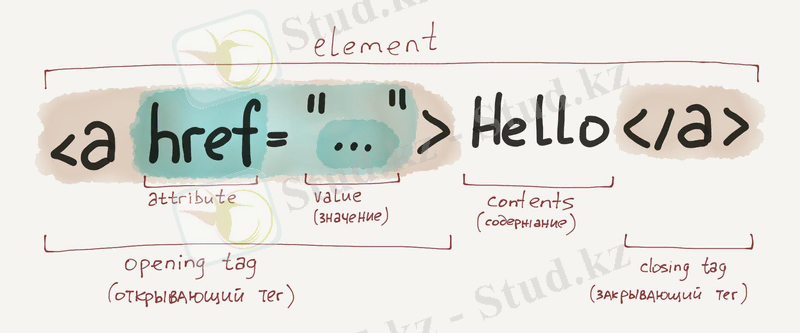 element
<a href= "..."> Hello </a>
attribute
value
(значение)
contents
(содержание)
opening tag
(открывающий тег)
closing tag
(закрывающий тег)
Stud.kz
Stud.kz - Stud.kz
Stud.kz - Stud.kz